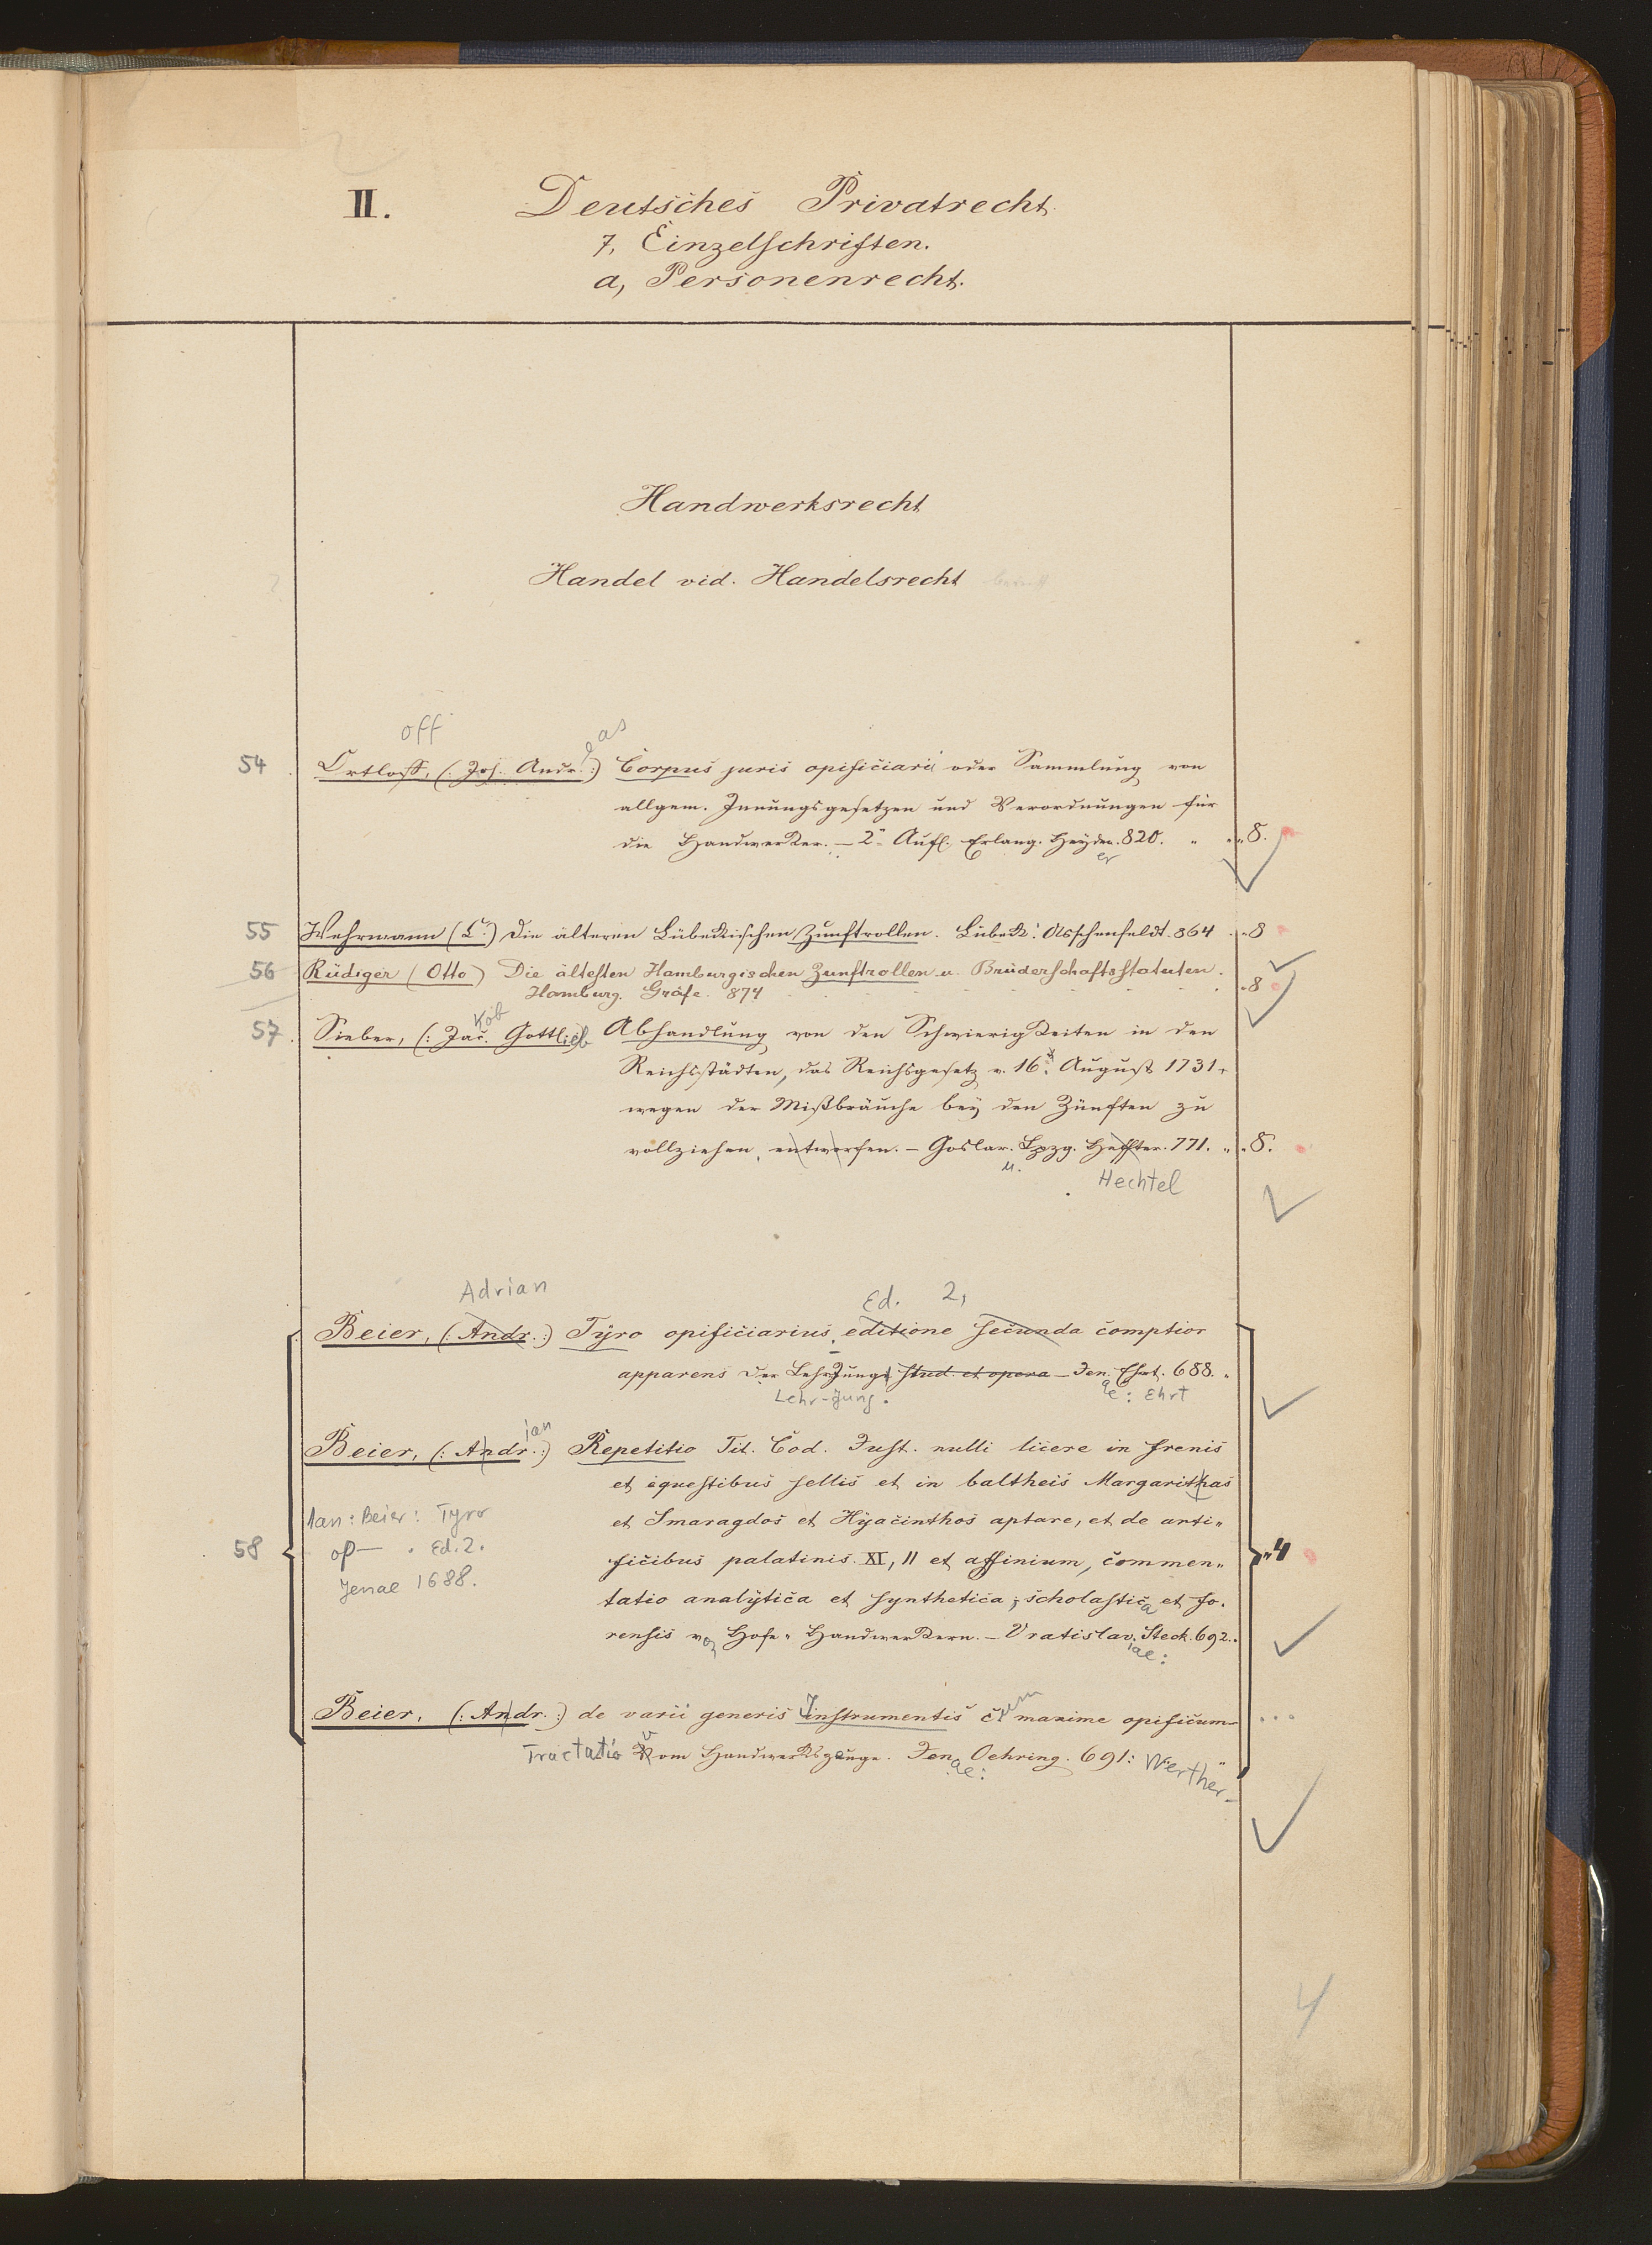 II. Deutsches Privatrecht.
7, Einzelschriften.
a, Personenrecht.
Handwerksrecht
Handel vid. Handelsrecht
off
eas
54 Ortloff, (: Joh. Andr. :) Corpus juris opificiarii oder Sammlung von
allgem. Innungsgesetzen und Verordnungen für
die Handwerker. — 2" Aufl. Erlang. Heyder. 820. " " 8.
er
55 Wehrmann (C.) Die älteren Lübeckischen Zunftrollen. Lübeck: Asschenfeldt. 864 . "8
56 Rüdiger (Otto) Die ältesten Hamburgischen Zunftrollen u. Brüderschaftsstatuten.
Hamburg. Gräfe. 874 "8
kob
57 Sieber, (: Jac. Gottlieb Abhandlung von den Schwierigkeiten in den
Reichsstädten, das Reichsgesetz v. 16. August 1731.
wegen der Mißbräuche bey den Zünften zu
vollziehen, entworfen. — Goslar. Lpzg. Heffter. 771. " 8.
u.
Hechtel
Adrian
Ed. 2,
Beier, (: Andr. :) Tyro opificiarius, editione secunda comptior
apparens der LehrJungs stud. et opera — Jen. Ehrt. 688. "
Lehr-Jung. ae: Ehrt
ian
Beier, (: Andr. :) Repetitio Tit. Cod. Just. nulli licere in frenis
et equestibus sellis et in baltheis Margarithas
et Smaragdos et Hyacinthos aptare, et de arti-
ficibus palatinis. XI, 11 et affinium, commen-
tatio analytica et synthetica; scholastica et fo-
rensis von Hofe-Handwerkern. — Vratislav. Steck. 692.
iae:
1an: Beier: Tyro
op— . Ed. 2.
Jenae 1688.
58 "4
um
Beier, (: Andr. :) de varii generis Instrumentis c maxime opificum
Tractatio Vom Handwerkszeuge. Jen. Oehring. 691: Werther-
ae:
4